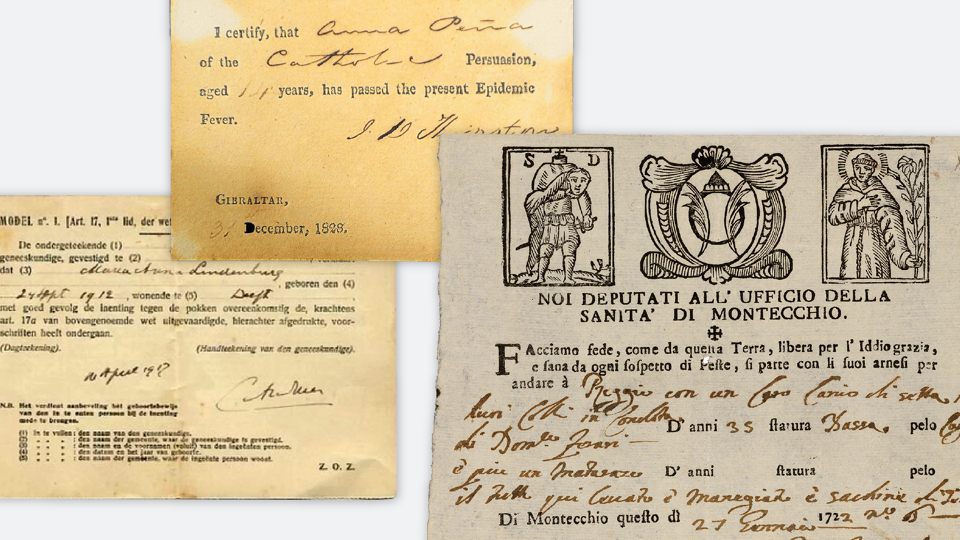 I certify, that Anna Peña
of the Catholic Persuasion,
aged 14 years, has passed the present Epidemic
Fever.
GIBRALTAR,
31 December, 1828.
MODEL nº. 1. [Art. 17, 1ste lid, der wet
De ondergeteekende (1)
geneeskundige, gevestigd te (2)
dat (3) Maria Anna Lindenburg
, geboren den (4)
24 Sept 1912, wonende te (5) Delft
met goed gevolg de inenting tegen de pokken overeenkomstig de, krachtens
art. 17a van bovengenoemde wet uitgevaardigde, hierachter afgedrukte, voor-
schriften heeft ondergaan.
(Dagteekening.) (Handteekening van den geneeskundige).
N.B. Het verdient aanbeveling het geboortebewijs
van den in te enten persoon bij de inenting
mede te brengen.
(1) In te vullen: den naam van den geneeskundige.
(2) „ „ „ : den naam der gemeente, waar de geneeskundige is gevestigd.
(3) „ „ „ : den naam en de voornamen (voluit) van den ingeënten persoon.
(4) „ „ „ : den datum en het jaar van geboorte.
(5) „ „ „ : den naam der gemeente, waar de ingeënte persoon woont.
Z. O. Z.
S D
NOI DEPUTATI ALL' UFFICIO DELLA
SANITA' DI MONTECCHIO.
FAcciamo fede, come da questa Terra, libera per l' Iddio grazia,
e sana da ogni sospetto di Peste, si parte con li suoi arnesi per
andare à Reggio con un
D' anni 35 statura Bassa. pelo
D' anni statura pelo
Di Montecchio questo dì 27 Gennaio 1722 nº